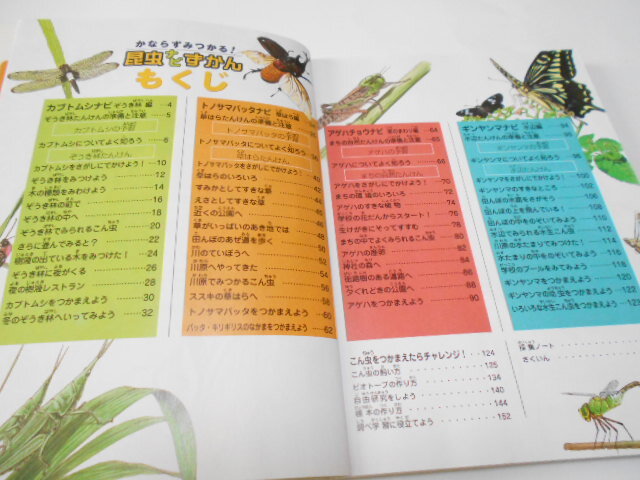 かならずみつかる!
昆虫ナビずかん
もくじ
カブトムシナビ ぞうき林 編 4
ぞうき林たんけんの準備と注意 5
カブトムシの予習
カブトムシについてよく知ろう 6
ぞうき林たんけん
カブトムシをさがしにでかけよう! 10
ぞうき林をみつけよう 12
木の種類をみわけよう 14
16
ぞうき林の中へ 18
ぞうき林でみられるこん虫 20
さらに進んでみると? 22
樹液の出ている木をみつけた! 24
ぞうき林に夜がくる 26
夜の樹液レストラン 28
カブトムシをつかまえよう 30
冬のぞうき林へいってみよう 32
トノサマバッタナビ 草はら編
草はらたんけんの準備と注意
トノサマバッタの予習
トノサマバッタについてよく知ろう
草はらたんけん
トノサマバッタをさがしにでかけよう!
草はらのいろいろ
すみかとしてすきな草
えさとしてすきな草
近くの公園へ
草がいっぱいのあき地では
田んぼのあぜ道を歩く
川のていぼうへ
川原へやってきた 54
川原でみつかるこん虫 56
ススキの草はらへ 58
トノサマバッタをつかまえよう 60
バッタ・キリギリスのなかまをつかまえよう 62
アゲハチョウナビ まちの自然編 64
まちの自然たんけんの準備と注意 65
アゲハの予習
アゲハについてよく知ろう 66
まちの自然たんけん
アゲハをさがしにでかけよう! 70
まちの環境のいろいろ 72
アゲハのすきな植物 74
学校の花だんからスタート! 76
生けがきにそってすすめ 78
まちの中でよくみられるこん虫 80
アゲハの道 82
神社の森へ 84
街路樹のある道路へ 86
夕ぐれどきの公園へ 88
アゲハをつかまえよう 90
ギンヤンマナビ 水辺編 94
水辺たんけんの準備と注意 95
ギンヤンマの予習
ギンヤンマについてよく知ろう 96
水辺たんけん
ギンヤンマをさがしにでかけよう! 100
ギンヤンマのすきなところ
田んぼの水路をさがそう
田んぼの上を飛んでいる!
田んぼの中をのぞいてみよう
田んぼでみられる水生こん虫
川原の水たまりでみつけた!
水たまりの中をのぞいてみよう
学校のプールをみてみよう
ギンヤンマをつかまえよう
ギンヤンマの幼虫をつかまえよう
いろいろな水生こん虫をつかまえよう
こん虫をつかまえたらチャレンジ! 124
こん虫の飼い方 125
ビオトープの作り方 134
自由研究をしよう 140
標本の作り方 144
調べ学習に役立てよう 152
採集ノート
さくいん